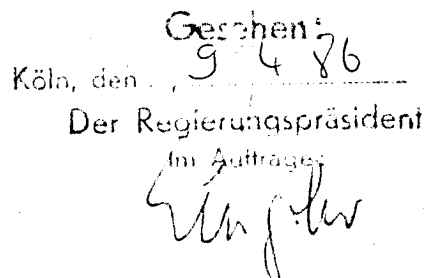 Gesehen:
Köln, den 9 4 86
Der Regierungspräsident
Im Auftrage: